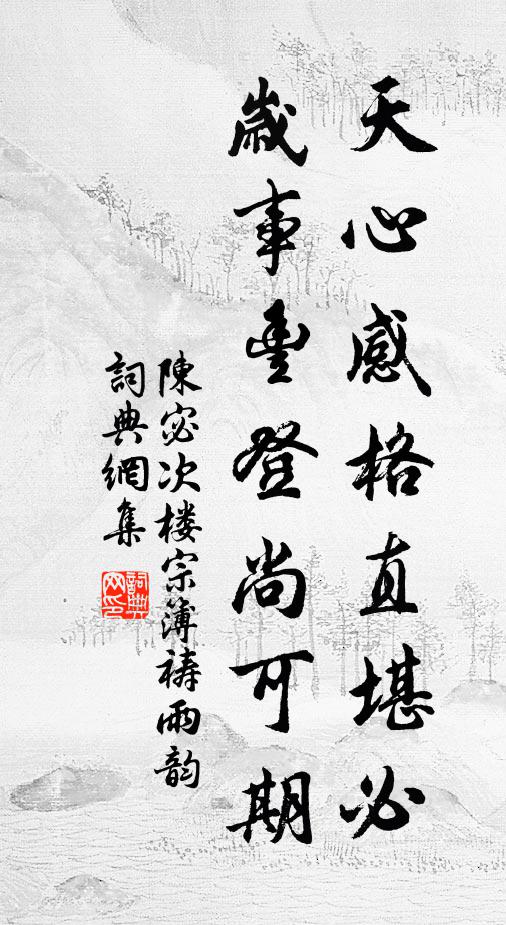 天心感格直堪必
歲事豊登尚可期
陳宓次楼宗簿禱雨韵
詞典網集
詞典网印